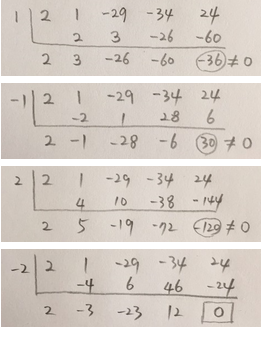 1 | 2 1 -29 -34 24
2 3 -26 -60
2 3 -26 -60 -36 ≠ 0
-1 | 2 1 -29 -34 24
-2 1 28 6
2 -1 -28 -6 30 ≠ 0
2 | 2 1 -29 -34 24
4 10 -38 -144
2 5 -19 -72 -120 ≠ 0
-2 | 2 1 -29 -34 24
-4 6 46 -24
2 -3 -23 12 0